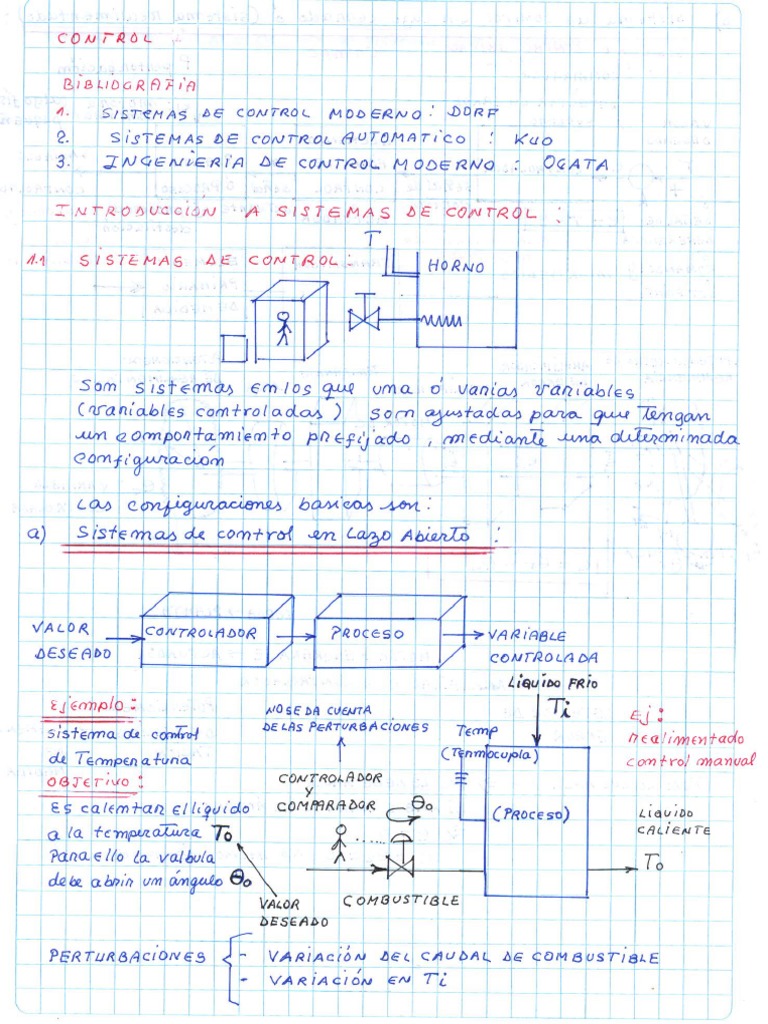 CONTROL
BIBLIOGRAFIA
1. SISTEMAS DE CONTROL MODERNO: DORF
2. SISTEMAS DE CONTROL AUTOMATICO : KUO
3. INGENIERIA DE CONTROL MODERNO : OGATA
INTRODUCCIÓN A SISTEMAS DE CONTROL :
1.1 SISTEMAS DE CONTROL :
T
HORNO
Son sistemas en los que una ó varias variables
(variables controladas) son ajustadas para que Tengan
un comportamiento prefijado, mediante una determinada
configuración
Las configuraciones basicas son:
a) Sistemas de control en Lazo Abierto :
VALOR
DESEADO
CONTROLADOR
PROCESO
VARIABLE
CONTROLADA
Ejemplo:
sistema de control
de Temperatura
OBJETIVO:
Es calentar el liquido
a la temperatura To
Para ello la valbula
debe abrir un ángulo θo
NO SE DA CUENTA
DE LAS PERTURBACIONES
CONTROLADOR
Y
COMPARADOR
θo
VALOR
DESEADO
COMBUSTIBLE
LIQUIDO FRIO
Ti
Temp
(Termocupla)
(PROCESO)
Ej:
realimentado
control manual
LIQUIDO
CALIENTE
To
PERTURBACIONES
- VARIACIÓN DEL CAUDAL DE COMBUSTIBLE
- VARIACIÓN EN Ti